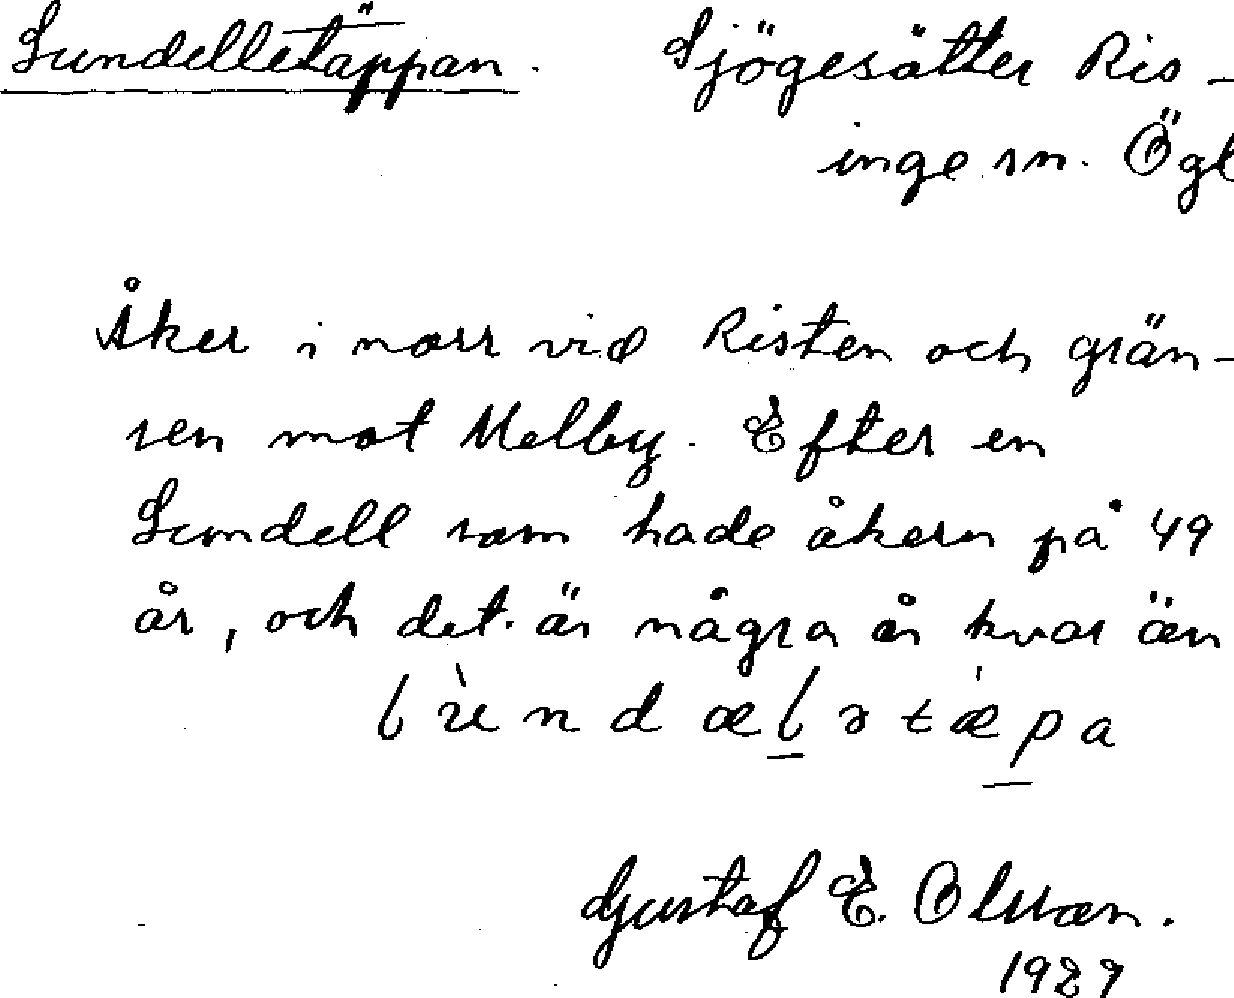 Lundelletäppan. Sjögesätter Ris-
inge sn. Ögl
Åker i norr vid Risten och grän-
sen mot Melby. Efter en
Lundell som hade åkern på 49
år, och det är några år kvar än
lùndæl̲ətǽp̲a
Gustaf E. Olsson.
1929